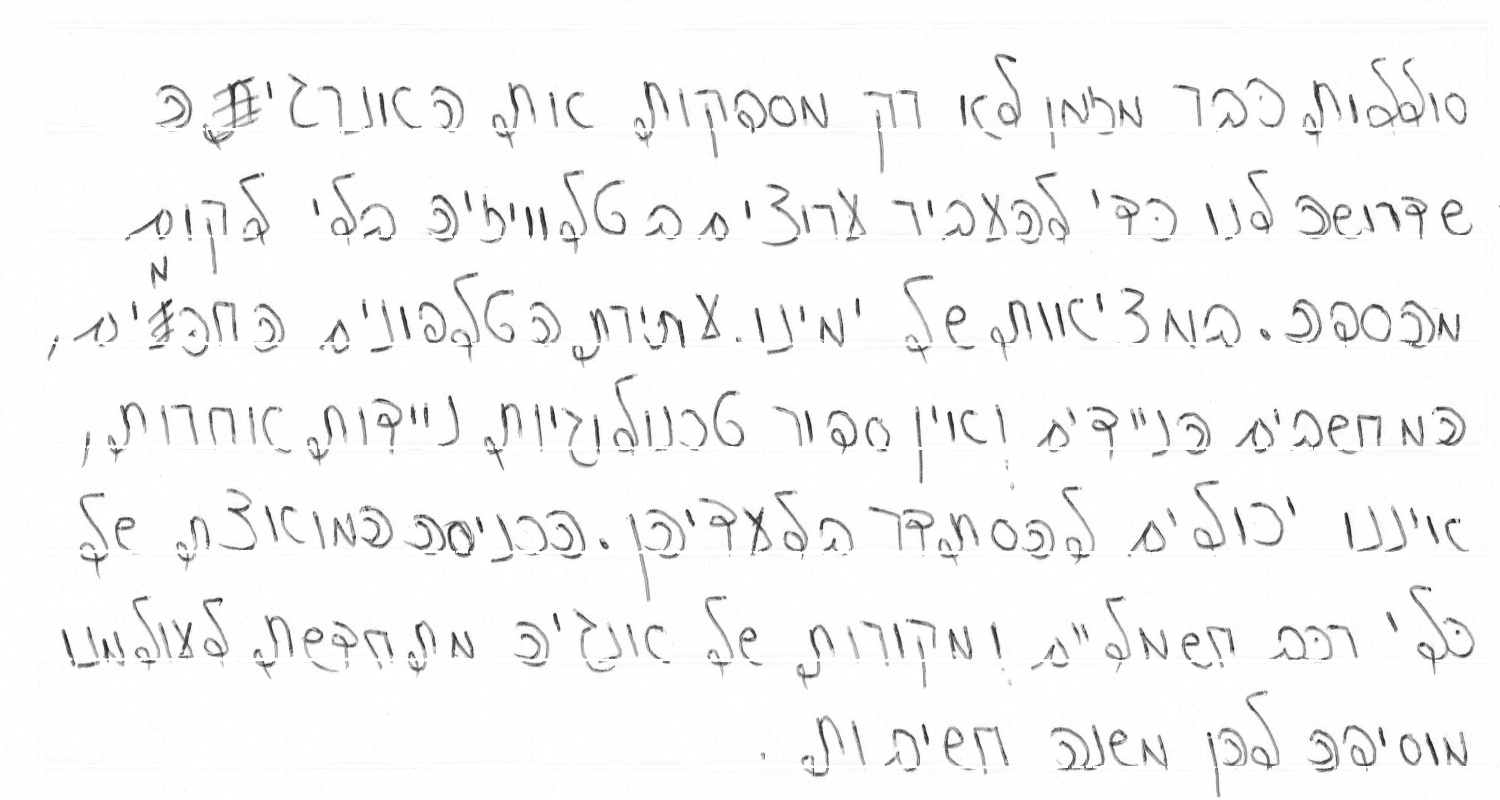 סוללות כבר מזמן לא רק מספקות את האנרגיה
שדרושה לנו כדי להעביר ערוצים בטלוויזיה בלי לקום
מהספה. במציאות של ימינו. עתירת הטלפונים החכמים,
המחשבים הניידים ואין ספור טכנולוגיות ניידות אחרות,
איננו יכולים להסתדר בלעדיהן. הכניסה המואצת של
כלי רכב חשמליים ומקורות של אנרגיה מתחדשת לעולמנו
מוסיפה להן משנה חשיבות.